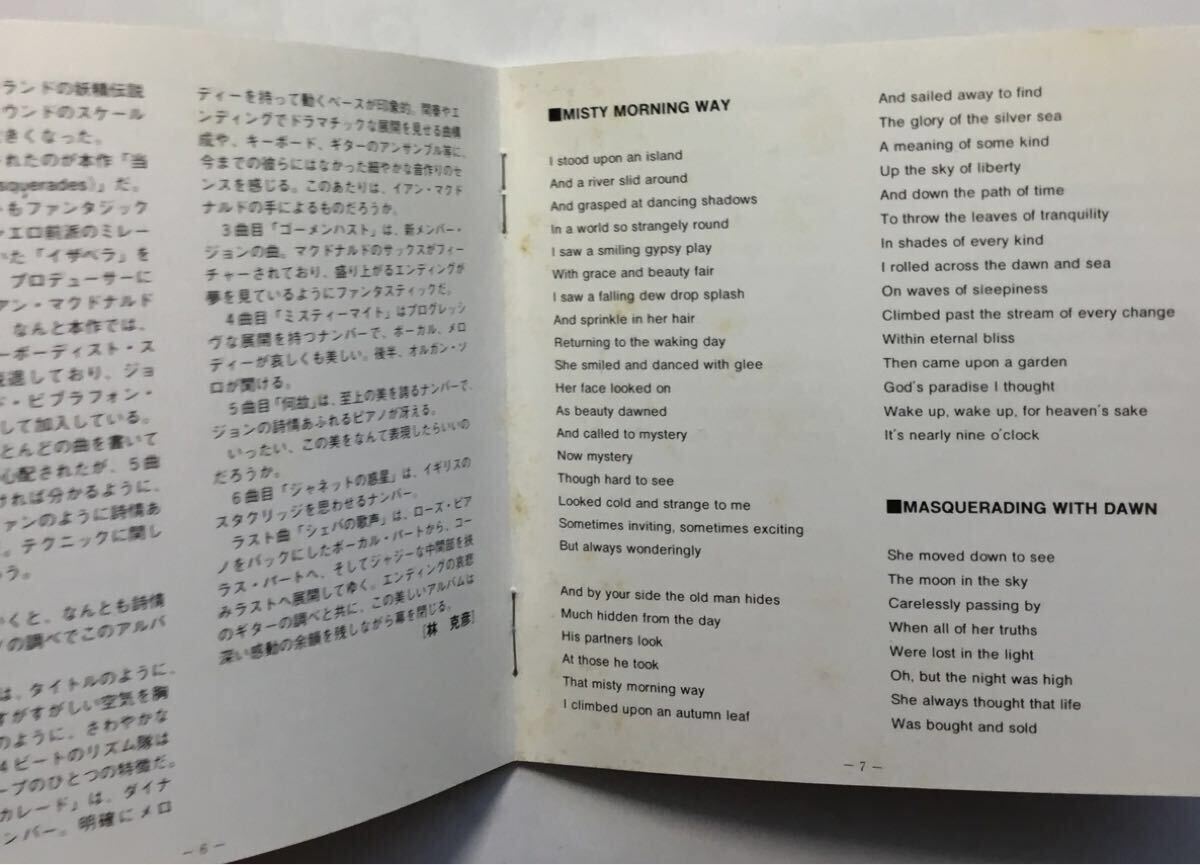 ランドの妖精伝説
ウンドのスケール
きくなった。
れたのが本作「当
squerades)」だ。
もファンタジック
ァエロ前派のミレー
いた「イザベラ」を
プロデューサーに
アン・マクドナルド
なんと本作では、
ーボーディスト・ス
退しており、ジョ
ド・ビブラフォン・
して加入している。
とんどの曲を書いて
心配されたが、5曲
ければ分かるように、
ァンのように詩情あ
。テクニックに関し
う。
いくと、なんとも詩情
の調べでこのアルバ
は、タイトルのように、
すがすがしい空気を胸
のように、さわやかな
4ビートのリズム隊は
ープのひとつの特徴だ。
カレード」は、ダイナ
ンバー。明確にメロ
ディーを持って動くベースが印象的。間奏やエ
ンディングでドラマチックな展開を見せる曲構
成や、キーボード、ギターのアンサンブル等に、
今までの彼らにはなかった細やかな音作りのセ
ンスを感じる。このあたりは、イアン・マクド
ナルドの手によるものだろうか。
3曲目「ゴーメンハスト」は、新メンバー・
ジョンの曲。マクドナルドのサックスがフィー
チャーされており、盛り上がるエンディングが
夢を見ているようにファンタスティックだ。
4曲目「ミスティーマイト」はプログレッシ
ヴな展開を持つナンバーで、ボーカル、メロ
ディーが哀しくも美しい。後半、オルガン・ソ
ロが聞ける。
5曲目「何故」は、至上の美を誇るナンバーで、
ジョンの詩情あふれるピアノが冴える。
いったい、この美をなんて表現したらいいの
だろうか。
6曲目「ジャネットの惑星」は、イギリスの
スタクリッジを思わせるナンバー。
ラスト曲「シェバの歌声」は、ローズ・ピア
ノをバックにしたボーカル・パートから、コー
ラス・パートへ、そしてジャジーな中間部を挟
みラストへ展開してゆく。エンディングの哀悲
のギターの調べと共に、この美しいアルバムは
深い感動の余韻を残しながら幕を閉じる。
[林 克彦]
－6－
■MISTY MORNING WAY
I stood upon an island
And a river slid around
And grasped at dancing shadows
In a world so strangely round
I saw a smiling gypsy play
With grace and beauty fair
I saw a falling dew drop splash
And sprinkle in her hair
Returning to the waking day
She smiled and danced with glee
Her face looked on
As beauty dawned
And called to mystery
Now mystery
Though hard to see
Looked cold and strange to me
Sometimes inviting, sometimes exciting
But always wonderingly
And by your side the old man hides
Much hidden from the day
His partners look
At those he took
That misty morning way
I climbed upon an autumn leaf
And sailed away to find
The glory of the silver sea
A meaning of some kind
Up the sky of liberty
And down the path of time
To throw the leaves of tranquility
In shades of every kind
I rolled across the dawn and sea
On waves of sleepiness
Climbed past the stream of every change
Within eternal bliss
Then came upon a garden
God's paradise I thought
Wake up, wake up, for heaven's sake
It's nearly nine o'clock
■MASQUERADING WITH DAWN
She moved down to see
The moon in the sky
Carelessly passing by
When all of her truths
Were lost in the light
Oh, but the night was high
She always thought that life
Was bought and sold
－7－